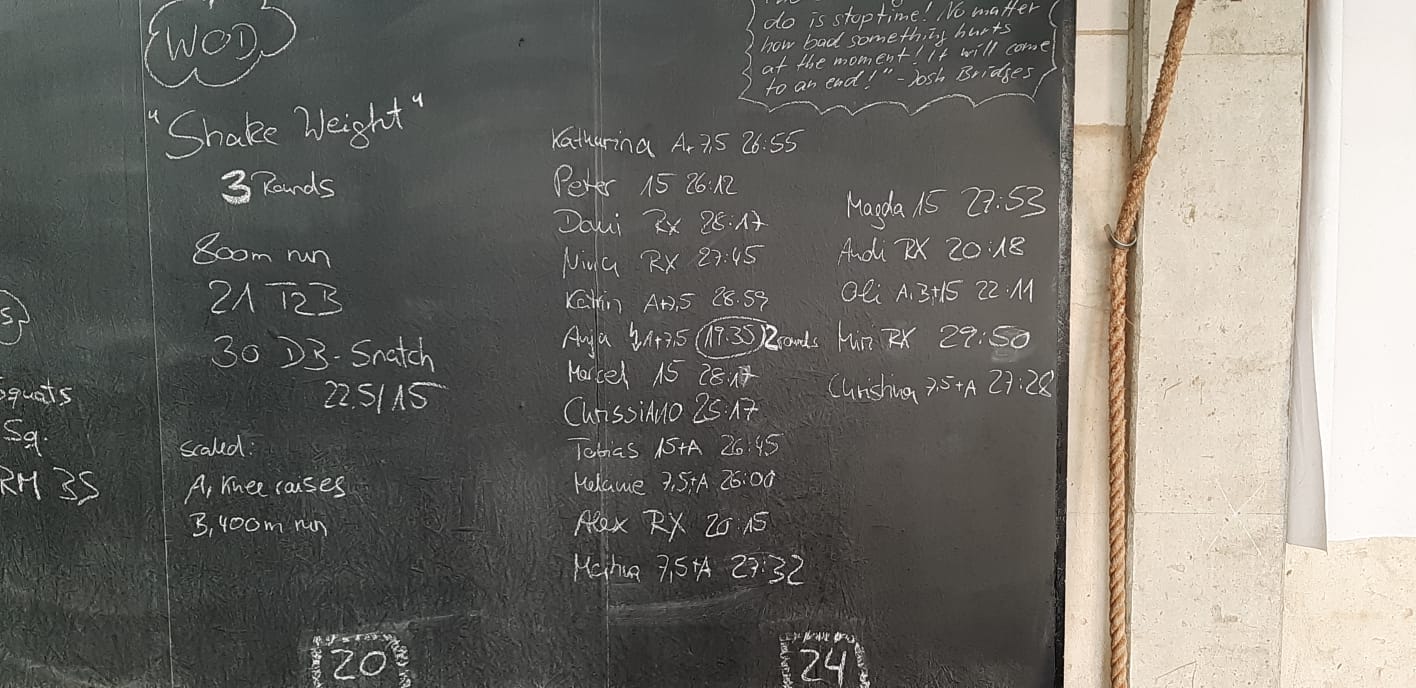 WOD
"Shake Weight"
3 Rounds
800m run
21 T2B
30 DB-Snatch
22.5/15
scaled:
A, Knee raises
B, 400m run
20
squats
Sq.
RM 35
do is stop time! No matter
how bad something hurts
at the moment! It will come
to an end!" - Josh Bridges
Katharina A+ 7,5 26:55
Peter 15 26:12
Dani RX 28:17
Nina RX 27:45
Katrin A+7,5 28:59
Anja 1+7,5 (19:35) 2rounds
Marcel 15 28:17
Chrissi A+10 25:17
Tobias 15+A 26:45
Melanie 7,5+A 26:00
Alex RX 20:15
Martina 7,5+A 27:32
Magda 15 27:53
Andi RX 20:18
Oli A,B+15 22:11
Miri RX 29:50
Christina 7,5+A 27:28
24